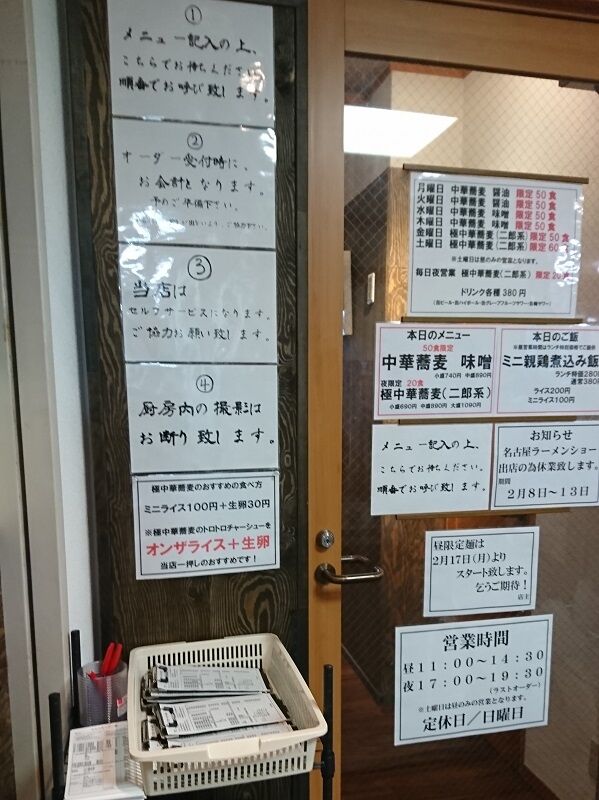 ①
メニュー記入の上、
こちらでお待ちください。
順番でお呼び致します。
②
オーダー受付時に、
お会計となります。
予めご準備下さい。
③
当店は
セルフサービスになります。
ご協力お願い致します。
④
厨房内の撮影は
お断り致します。
極中華蕎麦のおすすめの食べ方
ミニライス100円+生卵30円
※極中華蕎麦のトロトロチャーシューを
オンザライス+生卵
当店一押しのおすすめです!
月曜日 中華蕎麦 醤油 限定50食
火曜日 中華蕎麦 醤油 限定50食
水曜日 中華蕎麦 味噌 限定50食
木曜日 中華蕎麦 味噌 限定50食
金曜日 極中華蕎麦(二郎系) 限定50食
土曜日 極中華蕎麦(二郎系) 限定60
※土曜日は昼のみの営業となります。
毎日夜営業 極中華蕎麦(二郎系) 限定20食
ドリンク各種 380円
本日のメニュー
50食限定
中華蕎麦 味噌
小盛740円 中盛890円
夜限定 20食
極中華蕎麦(二郎系)
小盛690円 中盛890円 大盛1090円
本日のご飯
ミニ親鶏煮込み飯
ランチ特価280円
通常380円
ライス200円
ミニライス100円
メニュー記入の上、
こちらでお待ちください。
順番でお呼び致します。
お知らせ
名古屋ラーメンショー
出店の為休業致します。
期間
2月8日～13日
昼限定麺は
2月17日(月)より
スタート致します。
乞うご期待!
店主
営業時間
昼11:00～14:30
夜17:00～19:30
(ラストオーダー)
※土曜日は昼のみの営業となります。
定休日/日曜日